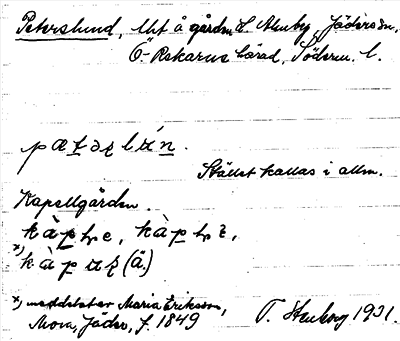 Peterslund, lht å gården L. Stenby, Jäders sn,
Ö-Rekarne härad, Söderm. l.
pætəʀlu̇́n.
Stället kallas i allm.
Kapellgården.
kàpʜe, kàpʜɛ,
x) kàpaʀ (ä.)
x) meddelat av Maria Eriksson,
Mora, Jäder, f. 1849 T. Stenborg 1931.